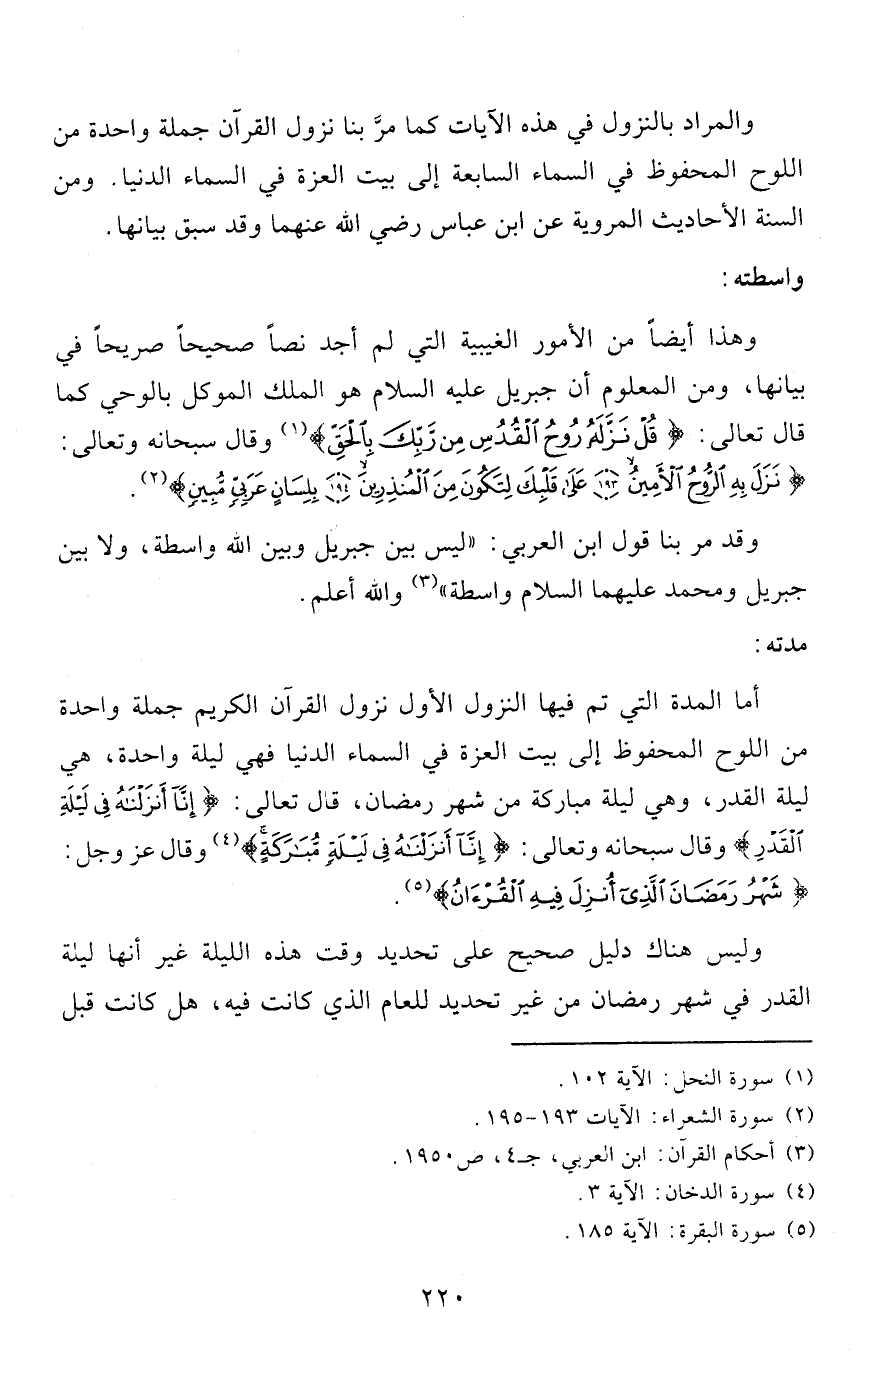 والمراد بالنزول في هذه الآيات كما مرَّ بنا نزول القرآن جملة واحدة من
اللوح المحفوظ في السماء السابعة إلى بيت العزة في السماء الدنيا. ومن
السنة الأحاديث المروية عن ابن عباس رضي الله عنهما وقد سبق بيانها.
واسطته:
وهذا أيضاً من الأمور الغيبية التي لم أجد نصاً صحيحاً صريحاً في
بيانها، ومن المعلوم أن جبريل عليه السلام هو الملك الموكل بالوحي كما
قال تعالى: ﴿قُلْ نَزَّلَهُۥ رُوحُ ٱلْقُدُسِ مِن رَّبِّكَ بِٱلْحَقِّ﴾(١) وقال سبحانه وتعالى:
﴿نَزَلَ بِهِ ٱلرُّوحُ ٱلْأَمِينُ ۝١٩٣ عَلَىٰ قَلْبِكَ لِتَكُونَ مِنَ ٱلْمُنذِرِينَ ۝١٩٤ بِلِسَانٍ عَرَبِيٍّ مُّبِينٍ﴾(٢).
وقد مر بنا قول ابن العربي: «ليس بين جبريل وبين الله واسطة، ولا بين
جبريل ومحمد عليهما السلام واسطة»(٣) والله أعلم.
مدته:
أما المدة التي تم فيها النزول الأول نزول القرآن الكريم جملة واحدة
من اللوح المحفوظ إلى بيت العزة في السماء الدنيا فهي ليلة واحدة، هي
ليلة القدر، وهي ليلة مباركة من شهر رمضان، قال تعالى: ﴿إِنَّآ أَنزَلْنَٰهُ فِى لَيْلَةِ
ٱلْقَدْرِ﴾ وقال سبحانه وتعالى: ﴿إِنَّآ أَنزَلْنَٰهُ فِى لَيْلَةٍ مُّبَٰرَكَةٍ﴾(٤) وقال عز وجل:
﴿شَهْرُ رَمَضَانَ ٱلَّذِىٓ أُنزِلَ فِيهِ ٱلْقُرْءَانُ﴾(٥).
وليس هناك دليل صحيح على تحديد وقت هذه الليلة غير أنها ليلة
القدر في شهر رمضان من غير تحديد للعام الذي كانت فيه، هل كانت قبل
(١) سورة النحل: الآية ١٠٢.
(٢) سورة الشعراء: الآيات ١٩٣-١٩٥.
(٣) أحكام القرآن: ابن العربي، جـ٤، ص١٩٥٠.
(٤) سورة الدخان: الآية ٣.
(٥) سورة البقرة: الآية ١٨٥.
٢٢٠